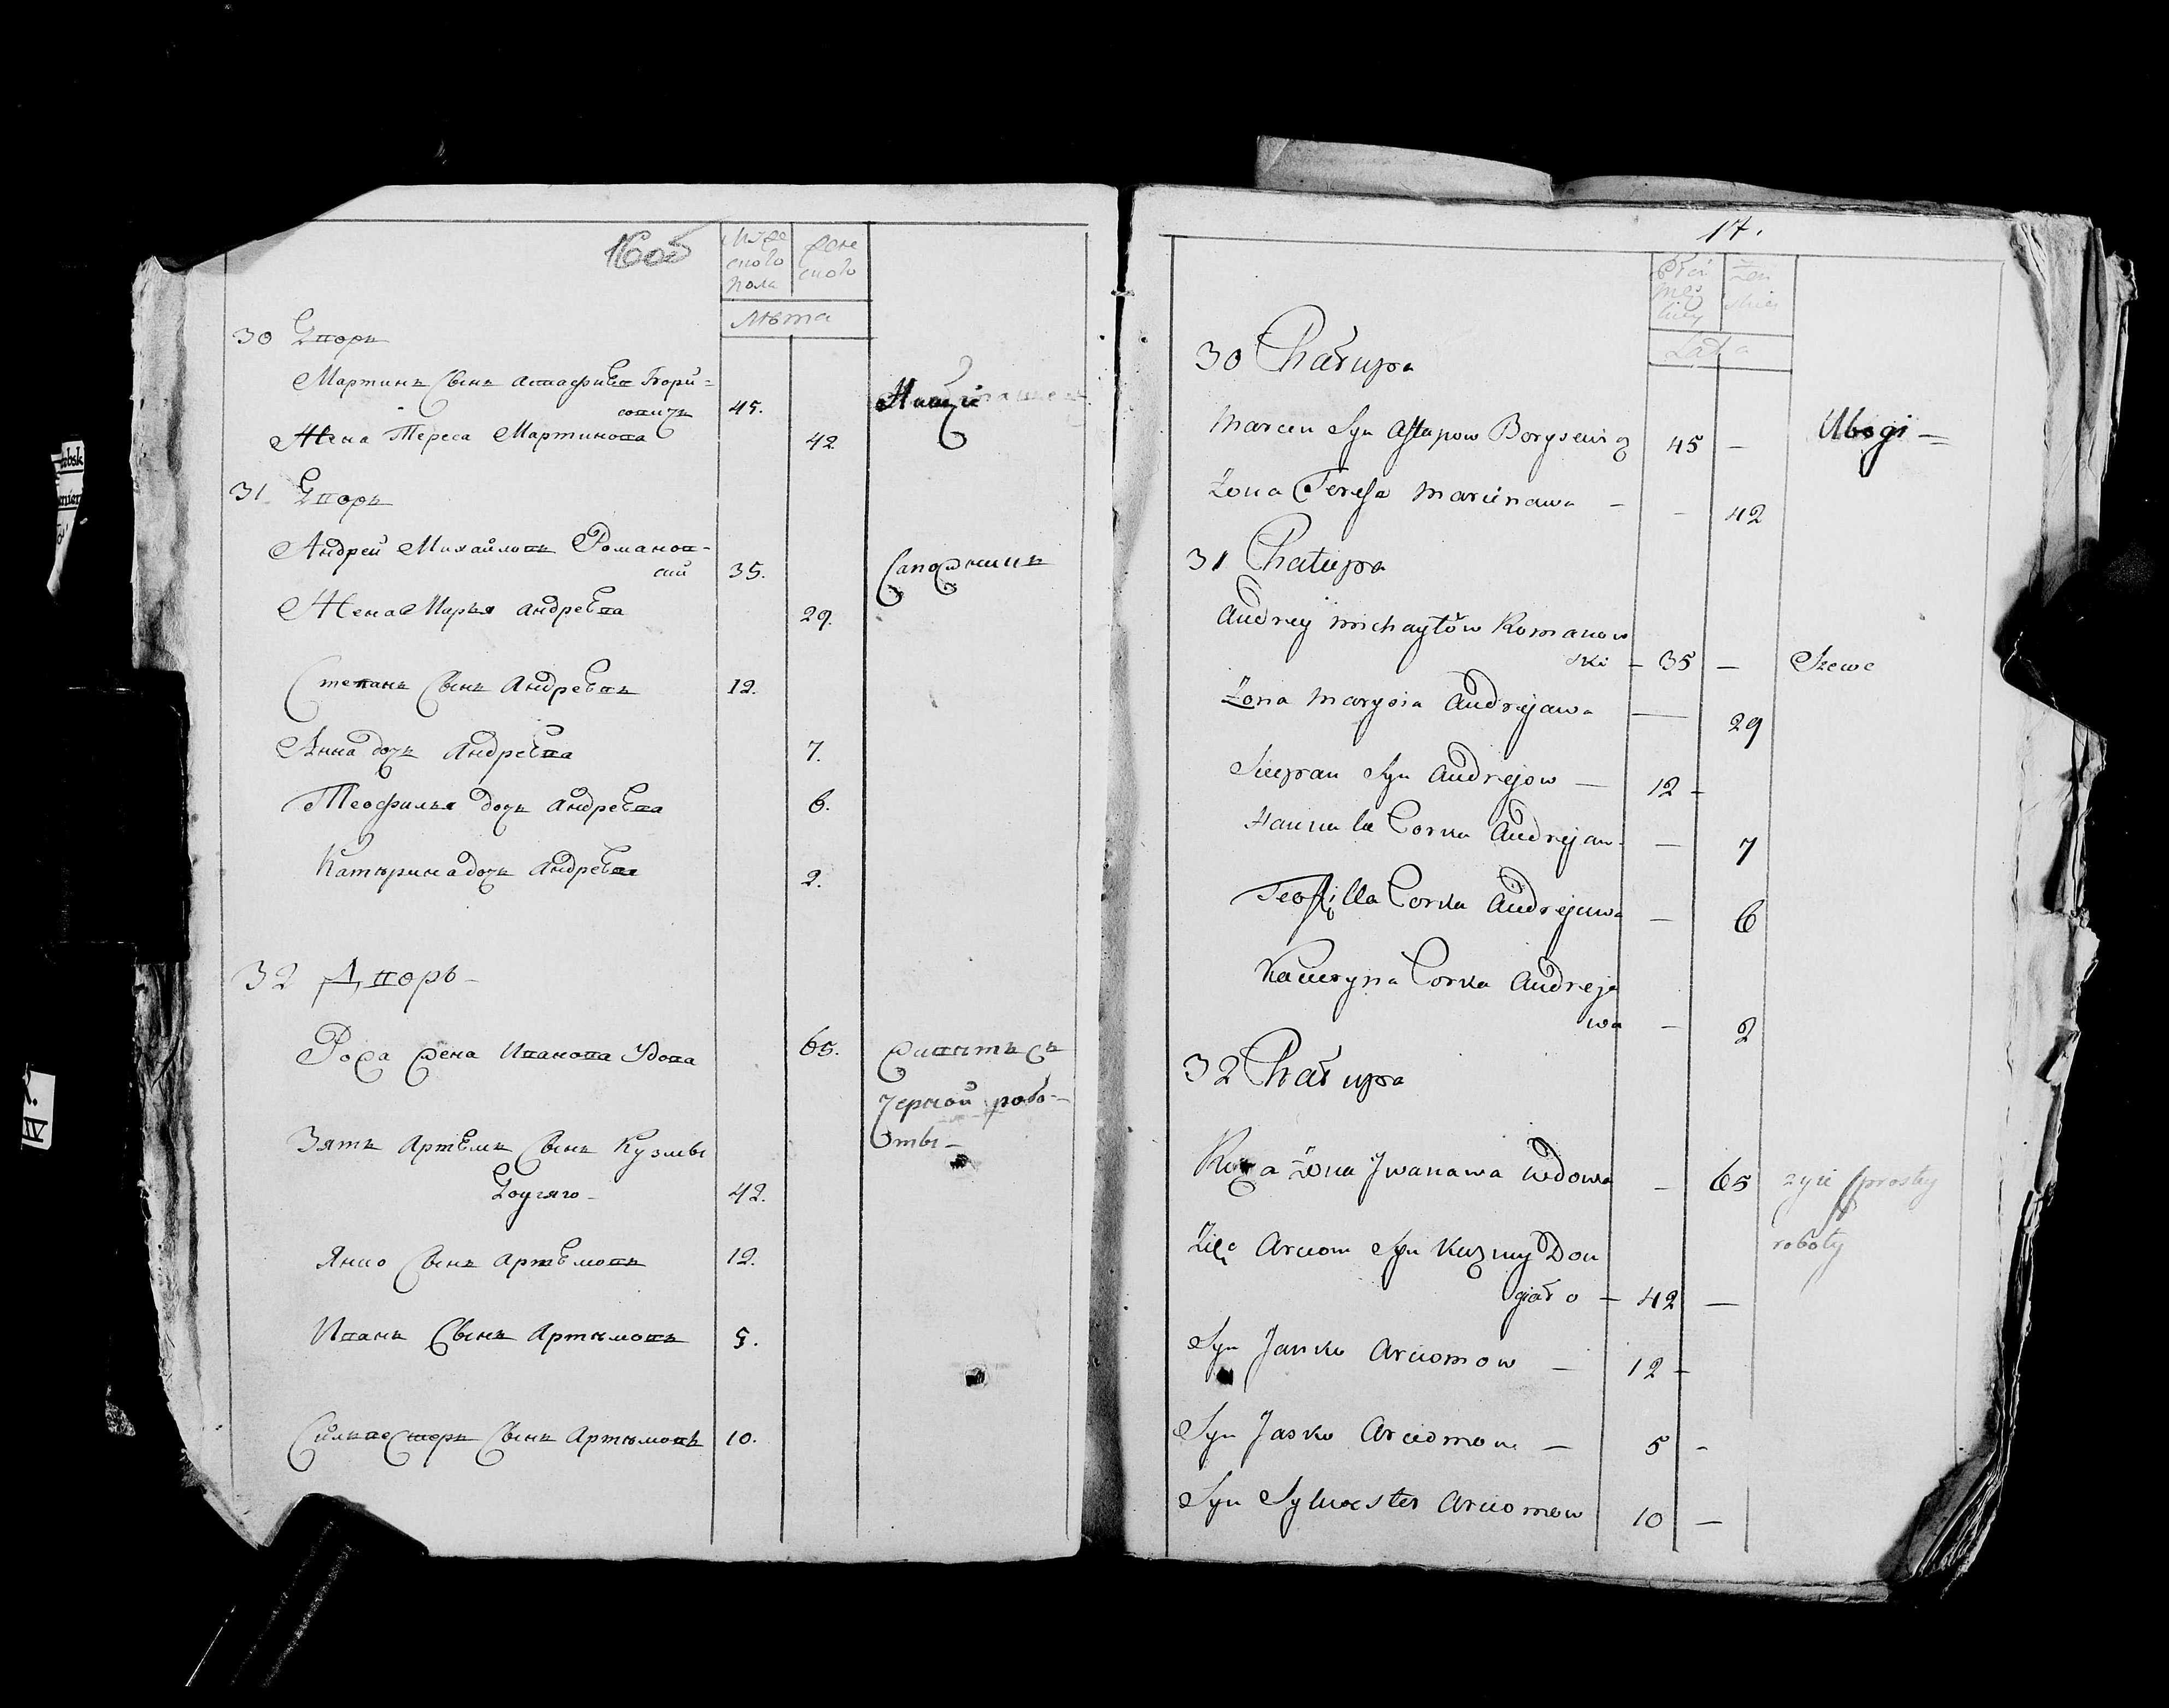 16об
Муже
ского
пола
Жен
ского
Лѣта
30 Дворъ
Мартинъ Сынъ Астафиевъ Бори-
совичъ 45.
Жена Тереса Мартинова 42
31 Дворъ
Андрей Михайловъ Романов-
ский 35. Сапожникъ
Жена Марья Андреева 29.
Степанъ Сынъ Андреевъ 12.
Анна дочь Андреева 7.
Теофилья дочь Андреева 6.
Катерина дочь Андреева 2.
32 Дворъ-
Роза жена Иванова Удова 65. живетъ съ
черной рабо-
ты-
Зять Артемъ Сынъ Кузмы
42.
Янко Сынъ Артемовъ 12.
Иванъ Сынъ Артемовъ 5.
Сильвестеръ Сынъ Артемовъ 10.
17.
Płci
Męs
kiey
Żeń
skiey
Lata
30 Chałupa
Marcin Syn Astapow Borysewicz 45 — Ubogi —
Żona Teresa Marcinawa — — 42
31 Chałupa
Andrey Michayłow Romanow
ski — 35 — Szewc
Żona Marysia Andrejawa — 29
Sciepan Syn Andrejow — 12 -
Corka Andrejaw. — 7
Teofilla Corka Andrejawa — 6
Kaciaryna Corka Andreja
wa — 2
32 Chałupa
Roza Żona Jwanawa wdowa — 65 żyie z prostey
roboty
Zięć Arciom Syn Kuzmy Dou
giało — 42 —
Syn Janko Arciomow — 12 -
Syn Jasko Arciomow — 5 -
Syn Sylwester Arciomow 10 —